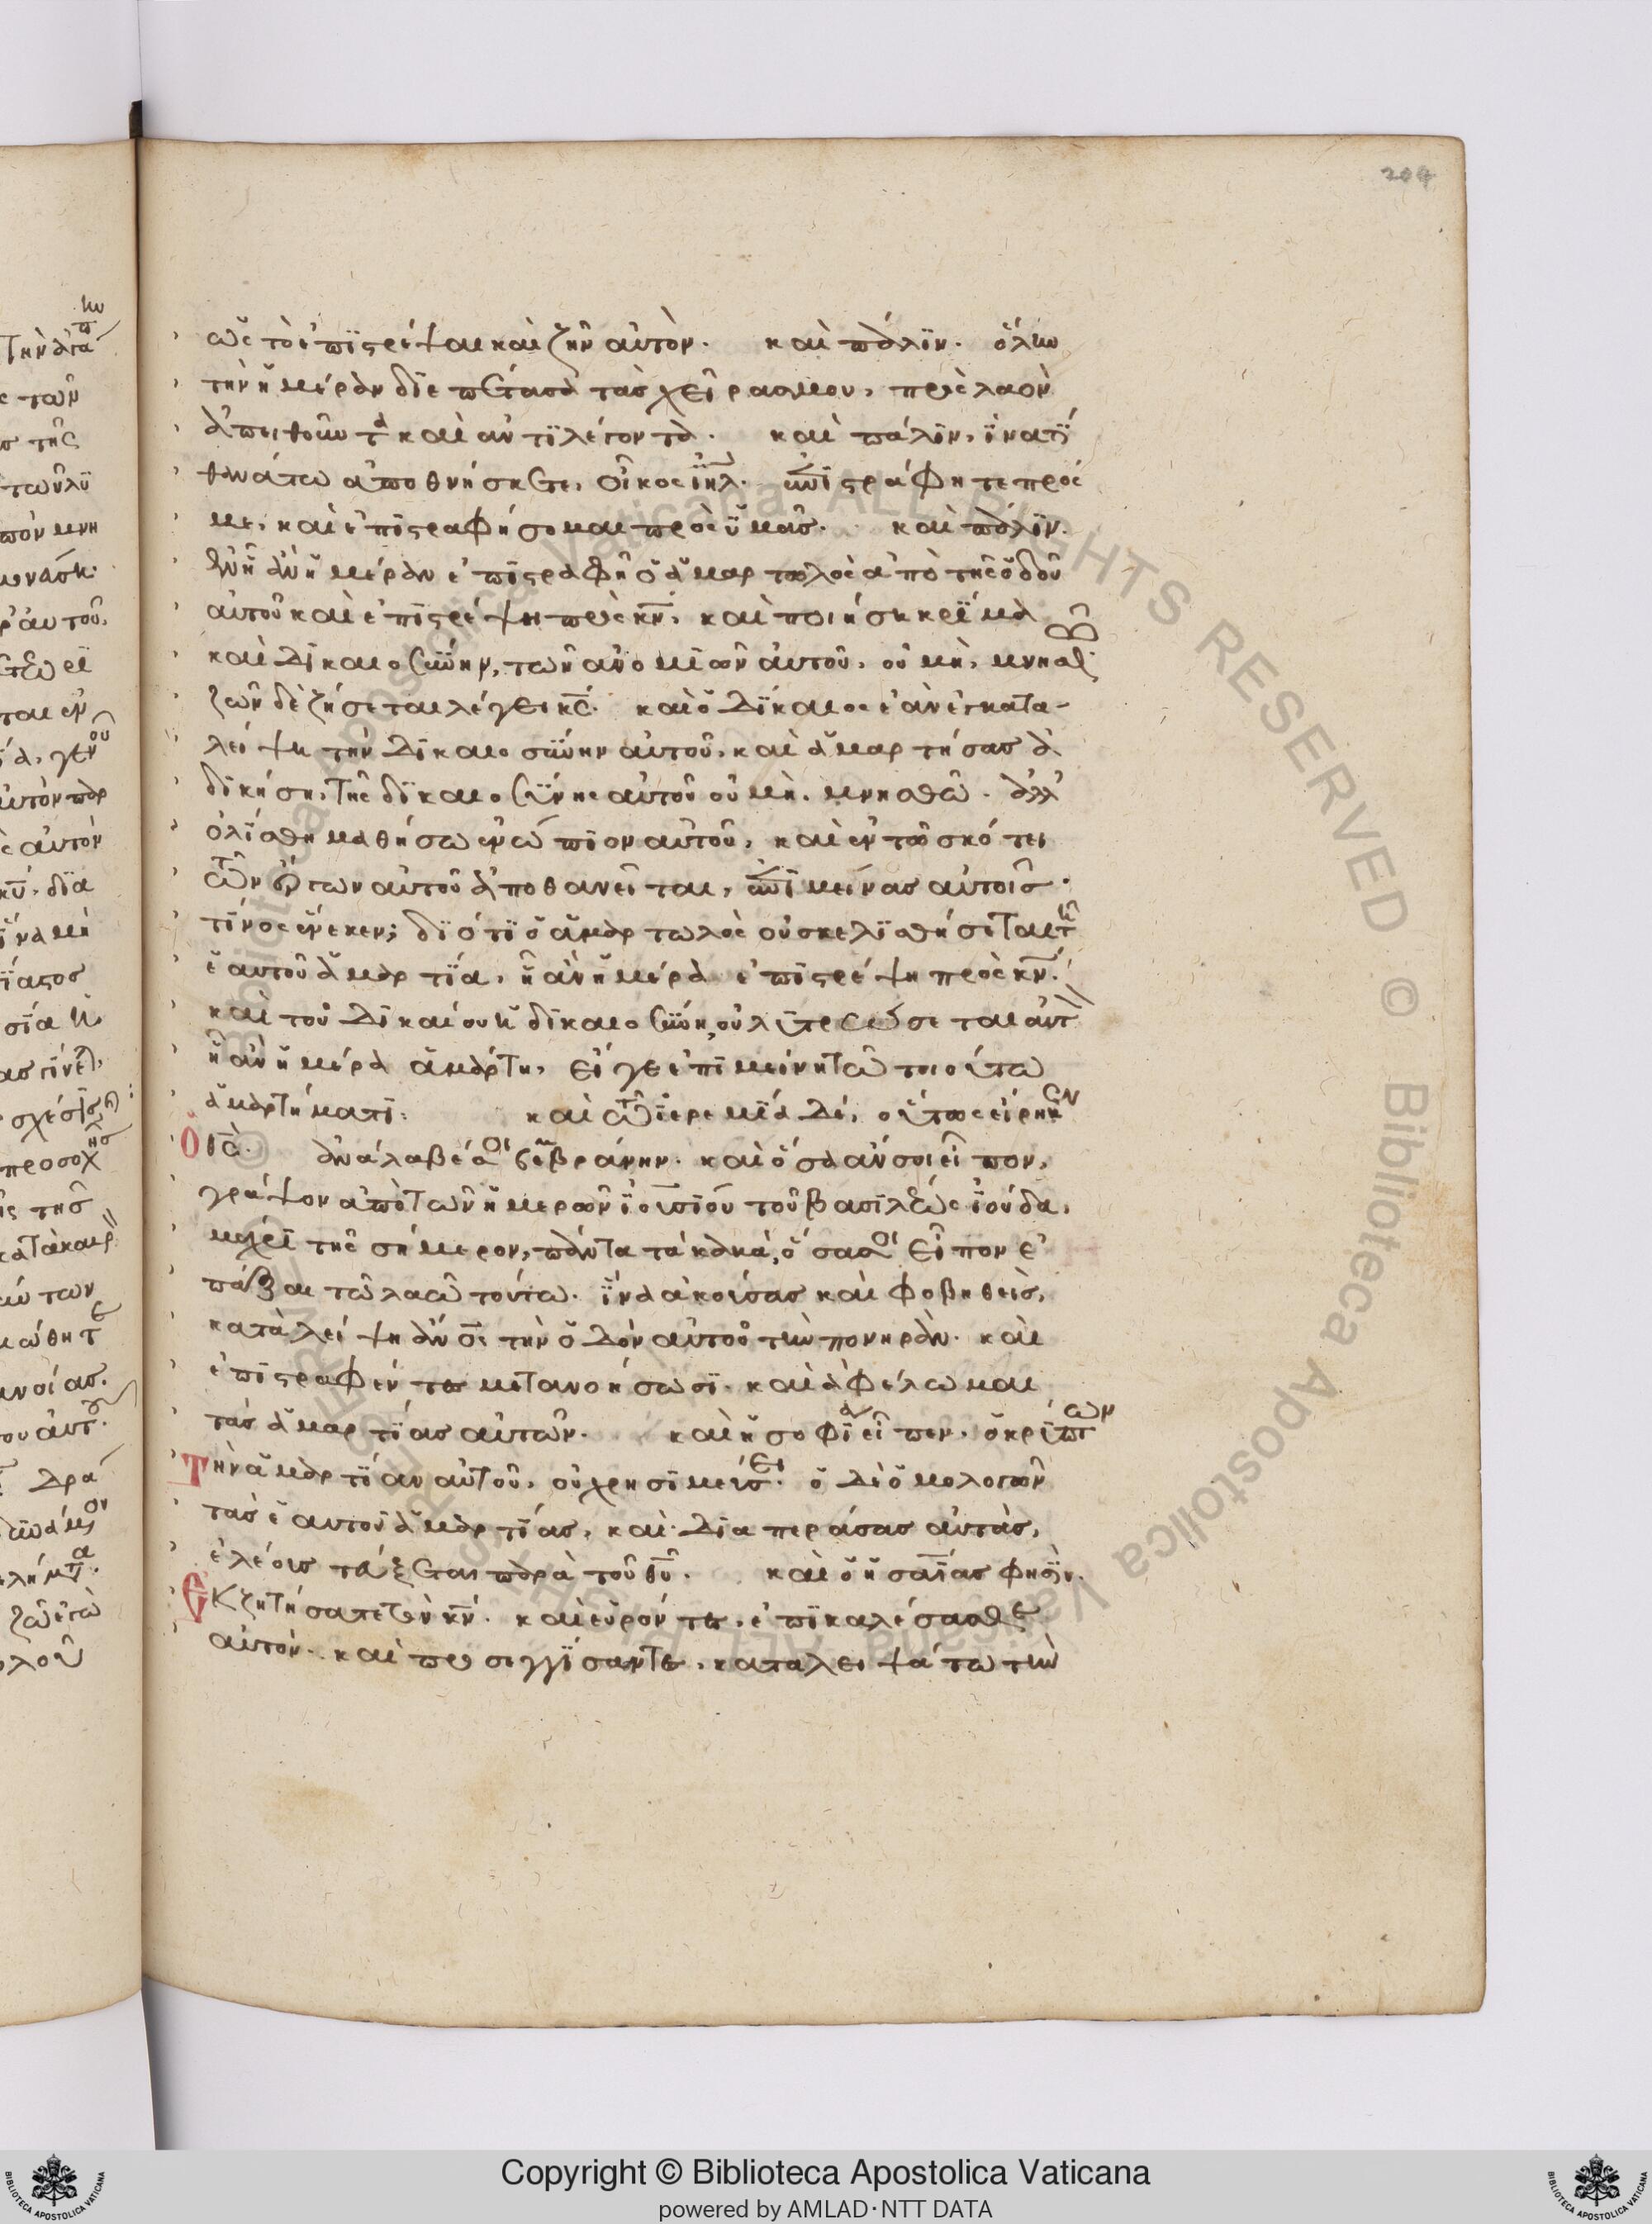 204
ὡς τὸ ἐπιστρέψαι καὶ ζῆν αὐτόν. καὶ πάλιν. ὅλην
τὴν ἡμέραν διεπέτασα τὰς χεῖράς μου, πρὸς λαὸν
ἀπειθοῦντα καὶ ἀντιλέγοντα. καὶ πάλιν, ἵνα τί
θανάτω ἀποθνήσκετε, οἶκος ιηλ. ἐπιστράφητε πρός
με, καὶ ἐπιστραφήσομαι πρὸς ὑμᾶς. καὶ πάλιν.
ἐν ᾗ ἂν ἡμέραν ἐπιστραφῆ ὁ ἁμαρτωλὸς ἀπὸ τῆς ὁδοῦ
αὐτοῦ καὶ ἐπιστρέψη πρὸς κν, καὶ ποιήση κρίμα
καὶ δικαιοσύνην, τῶν ἀνομιῶν αὐτοῦ, οὐ μὴ, μνησθ
ζωῆ δὲ ζήσεται λέγει κς. καὶ ὁ δίκαιος ἐὰν ἐγκατα-
λείψη τὴν δικαιοσύνην αὐτοῦ, καὶ ἁμαρτήσας ἀ
δικήση, τῆς δικαιοσύνης αὐτοῦ οὐ μὴ, μνησθῶ. ἀλλ
ὀλίσθημα θήσω ἐνώπιον αὐτοῦ, καὶ ἐν τῶ σκότει
τῶν ἔργων αὐτοῦ ἀποθανεῖται, ἐπιμείνας αὐτοῖς.
τίνος ἕνεκεν; διότι ὁ ἁμαρτωλὸς οὐ σκελισθήσεται τῆ
ἑαυτοῦ ἁμαρτία, ᾗ ἂν ἡμέρα ἐπιστρέψη πρὸς κν.
καὶ τοῦ δικαίου ἡ δικαιοσύνη, οὐ λυτρώσεται αὐτ
ᾗ ἂν ἡμέρα ἁμάρτη, εἴγε ἐπιμείνη τῶ τοιούτω
ἁμαρτήματι. καὶ τῶ ἱερεμία δέ, οὕτως εἴρηκεν
Ο κς. ἀνάλαβέ σοι μεβράνην. καὶ ὅσα ἄν σοι εἶπον,
γράψον ἀπὸ τῶν ἡμερῶν ἰωσίου τοῦ βασιλέως ἰούδα,
μέχρι τῆς σήμερον, πάντα τὰ κακά, ὅσα σοι εἶπον ἐ
πάξαι τῶ λαῶ τούτω. ἵνα ἀκούσας καὶ φοβηθείς,
καταλείψη ἄνος τὴν ὁδὸν αὐτοῦ τὴν πονηράν. καὶ
ἐπιστραφέντες μετανοήσωσι. καὶ ἀφέλωμαι
τὰς ἁμαρτίας αὐτῶν. καὶ ἡ σοφία εἶπεν, ὁ κρύπτων
Τὴν ἁμαρτίαν αὐτοῦ, οὐ χρησιμεύσει. ὁ δὲ ὁμολογῶν
τὰς ἑαυτοῦ ἁμαρτίας, καὶ διαπεράσας αὐτάς,
ἐλέους τεύξεται παρὰ τοῦ θυ. καὶ ὁ ἡσαΐας φησίν.
Εκζητήσατε τὸν κν. καὶ εὑρόντες, ἐπικαλέσασθε
αὐτόν. καὶ προσεγγίσαντες, καταλειψάτω τὴν
Copyright © Biblioteca Apostolica Vaticana
powered by AMLAD·NTT DATA